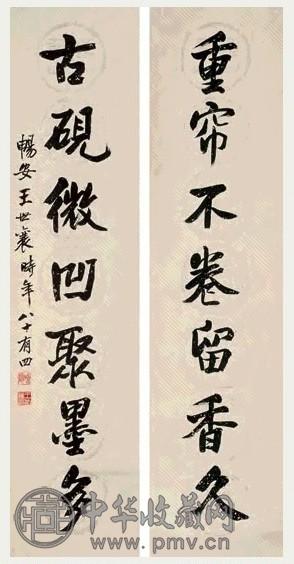 重帘不卷留香久
古砚微凹聚墨多
暢安王世襄時年八十有四
中华收藏网
www.pmv.cn